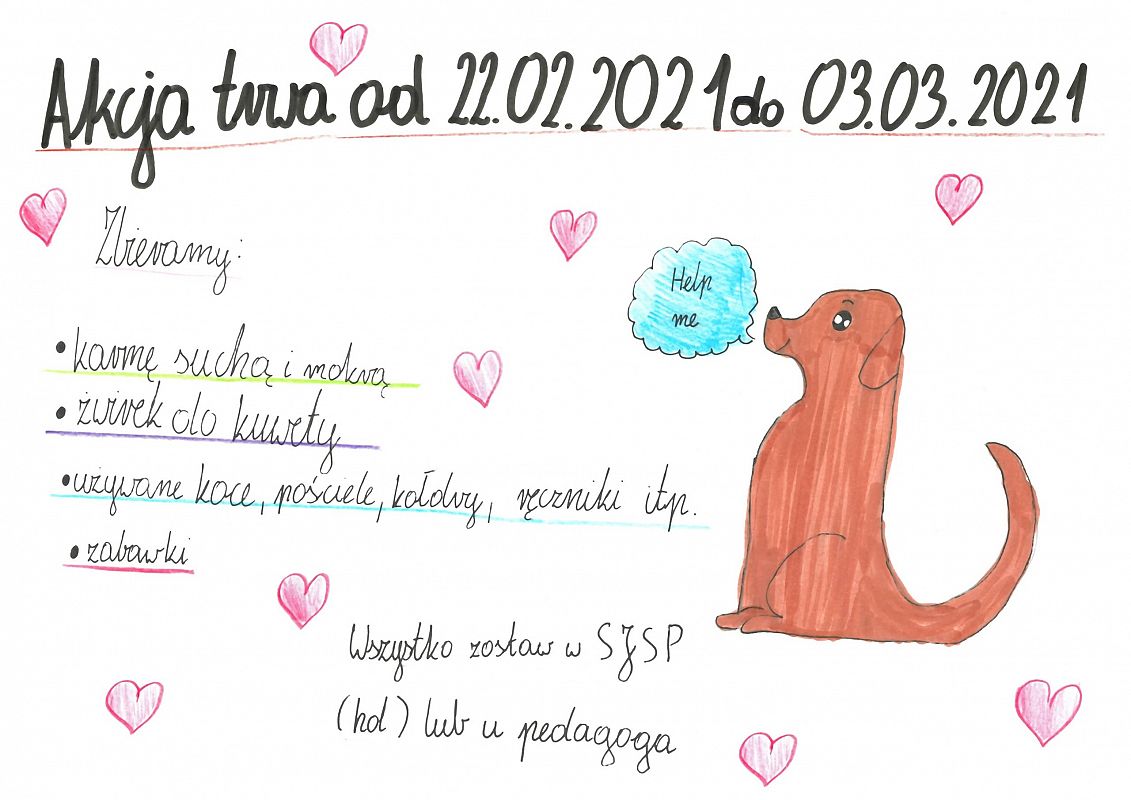 Akcja trwa od 22.02.2021 do 03.03.2021
Zbieramy:
Help
me
• karmę suchą i mokrą
• żwirek do kuwety
• używane koce, pościele, kołdry, ręczniki itp.
• zabawki
Wszystko zostaw w SJSP
(hol) lub u pedagoga